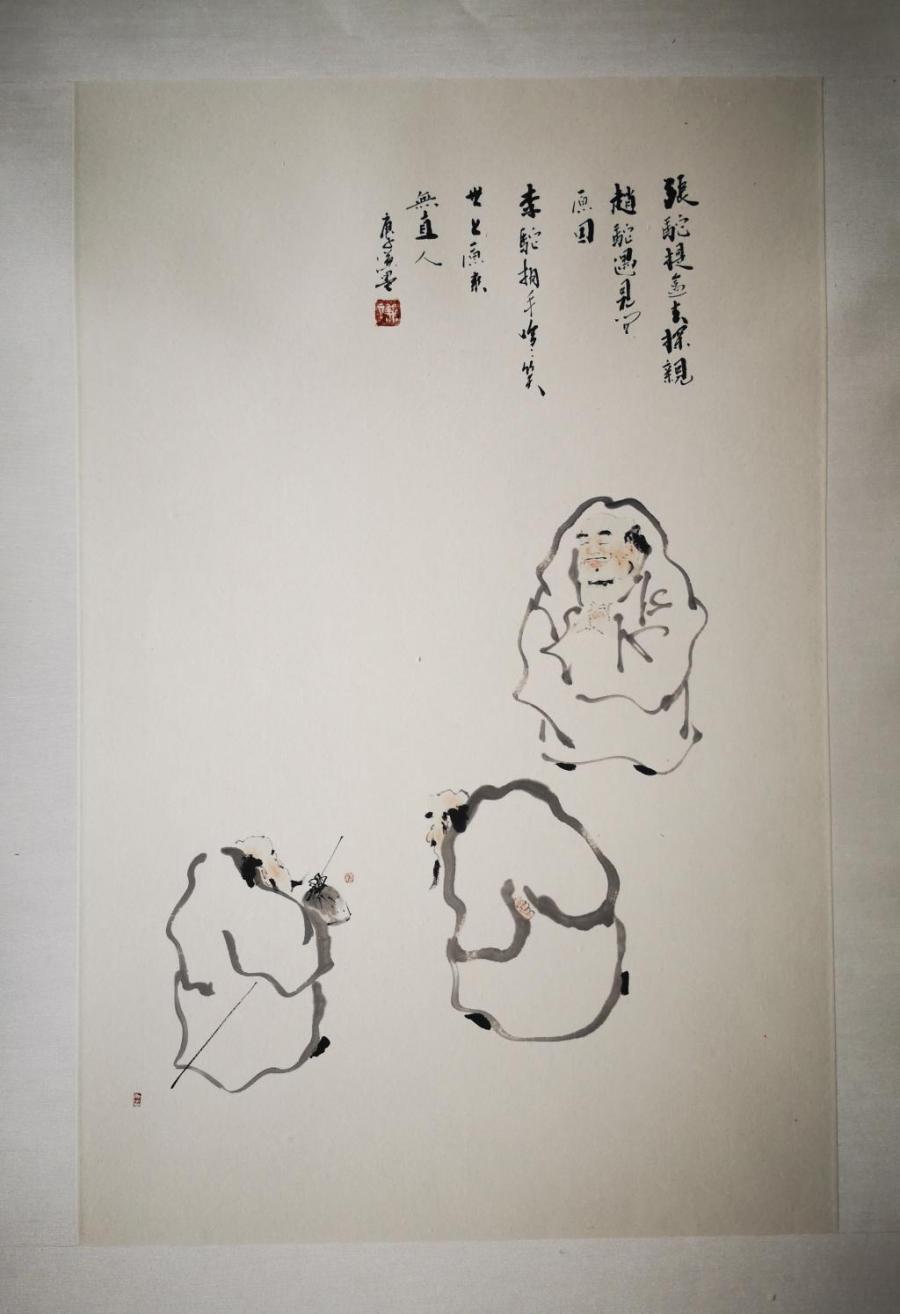 張駝提盒去探親
趙駝遇見問
原因
李駝拍手哈哈笑
世上原來
無直人
庚子